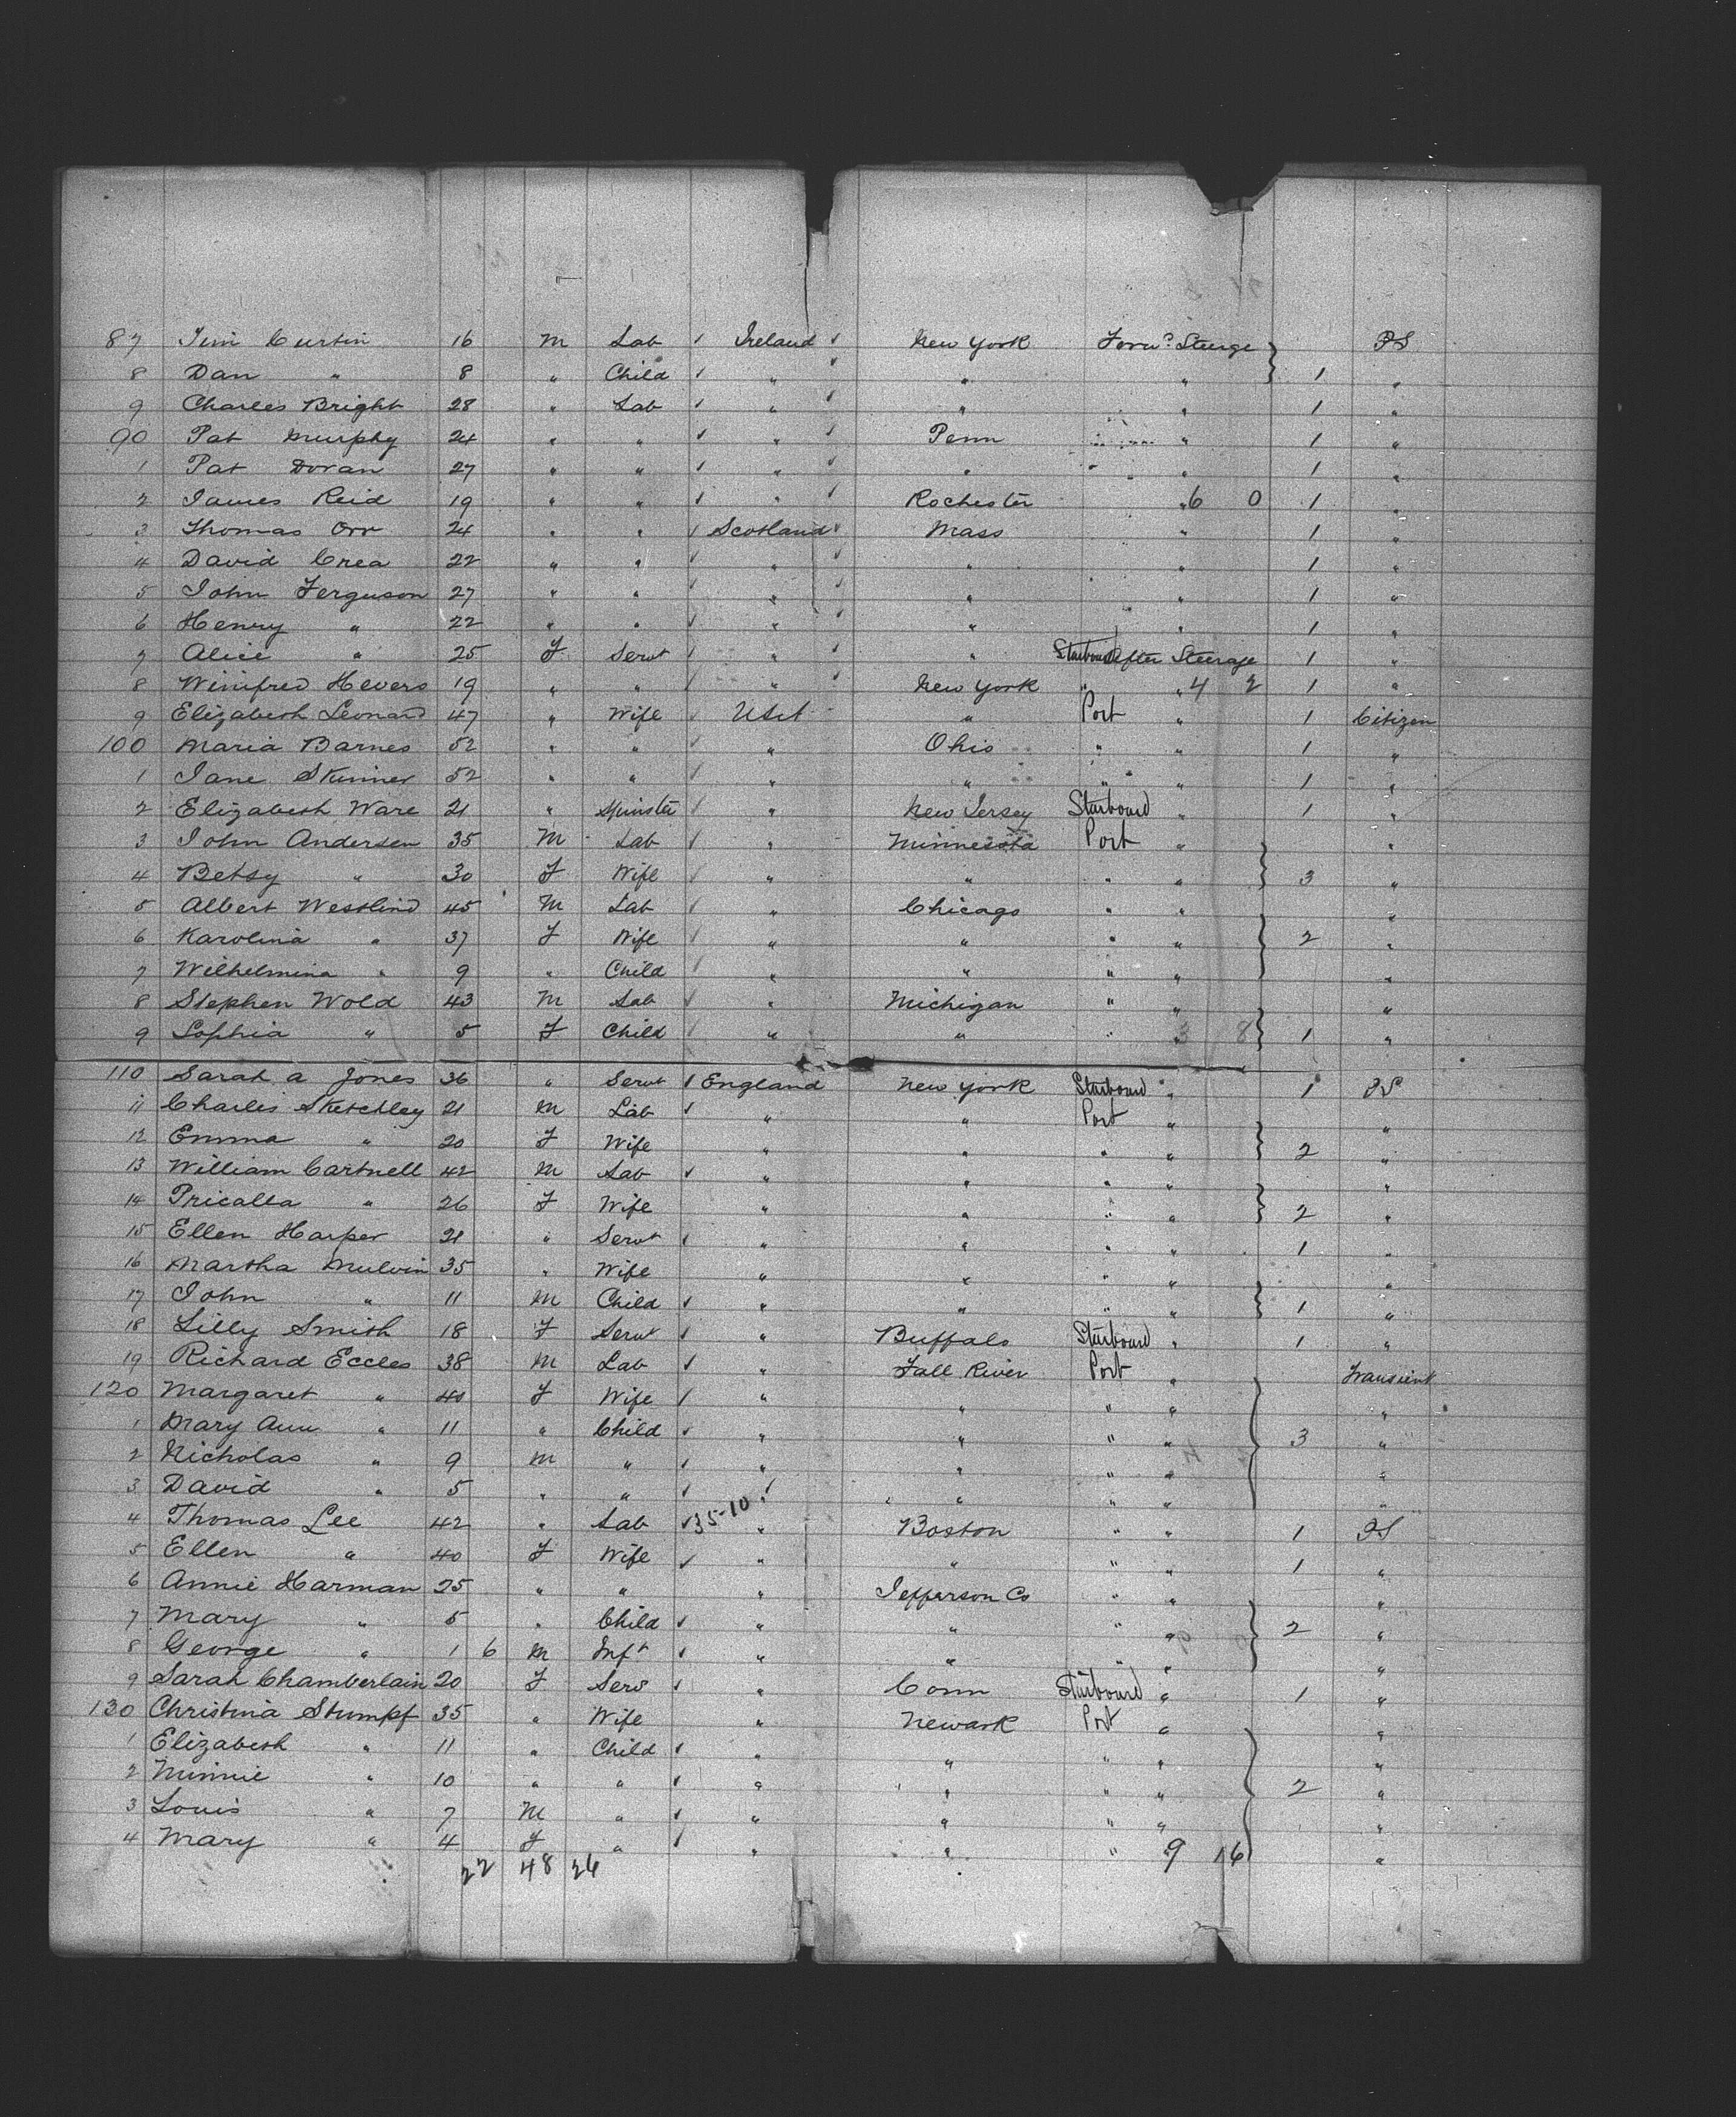 87 Tim Curtin 16 M Lab Ireland New York Forwd. Steerge PS
8 Dan " 8 " Child " " " 1 "
9 Charles Bright 28 " Lab " " " 1 "
90 Pat Murphy 24 " " " Penn " 1 "
1 Pat Doran 27 " " " " " 1 "
2 James Reid 19 " " " Rochester " 6 0 1 "
3 Thomas Orr 24 " " Scotland Mass " 1 "
4 David Crea 22 " " " " " 1 "
5 John Ferguson 27 " " " " " 1 "
6 Henry " 22 " " " " " 1 "
7 Alice " 25 F Servt " " Starboard After Steerage 1 "
8 Winifred Hevers 19 " " " New York " " 4 2 1 "
9 Elizabeth Leonard 47 " Wife USA " Port " 1 Citizen
100 Maria Barnes 52 " " " Ohio " " 1 "
1 Jane Skinner 52 " " " " " " 1 "
2 Elizabeth Ware 21 " Spinster " New Jersey Starboard " 1 "
3 John Andersen 35 M Lab " Minnesota Port " "
4 Betsy " 30 F Wife " " " " 3 "
5 Albert Westlind 45 M Lab " Chicago " " "
6 Karolina " 37 F Wife " " " " 2 "
7 Wilhelmina " 9 " Child " " " " "
8 Stephen Wold 43 M Lab " Michigan " " "
9 Sophia " 5 F Child " " " 3 8 1 "
110 Sarah A Jones 36 " Servt England New York Starboard " 1 PS
11 Charles Sketchley 21 M Lab " " Port " "
12 Emma " 20 F Wife " " " " 2 "
13 William Cartnell 42 M Lab " " " " "
14 Pricalla " 26 F Wife " " " " 2 "
15 Ellen Harper 21 " Servt " " " " 1 "
16 Martha Mulvin 35 " Wife " " " " "
17 John " 11 M Child " " " " 1 "
18 Lilly Smith 18 F Servt " Buffalo Starboard " 1 "
19 Richard Eccles 38 M Lab " Fall River Port " Transient
120 Margaret " 40 F Wife " " " " "
1 Mary Ann " 11 " Child " " " " 3 "
2 Nicholas " 9 M " " " " " "
3 David " 5 " " " " " " "
4 Thomas Lee 42 " Lab 35-10 " Boston " " 1 PS
5 Ellen " 40 F Wife " " " " 1 "
6 Annie Harman 25 " " " Jefferson Co " " "
7 Mary " 5 " Child " " " " 2 "
8 George " 1 6 M Inft " " " " "
9 Sarah Chamberlain 20 F Serv " Conn Starboard " 1 "
130 Christina Stumpf 35 " Wife " Newark Port " "
1 Elizabeth " 11 " Child " " " " "
2 Minnie " 10 " " " " " " 2 "
3 Louis " 7 M " " " " " "
4 Mary " 4 F " " " " 9 16 "
22 48 26